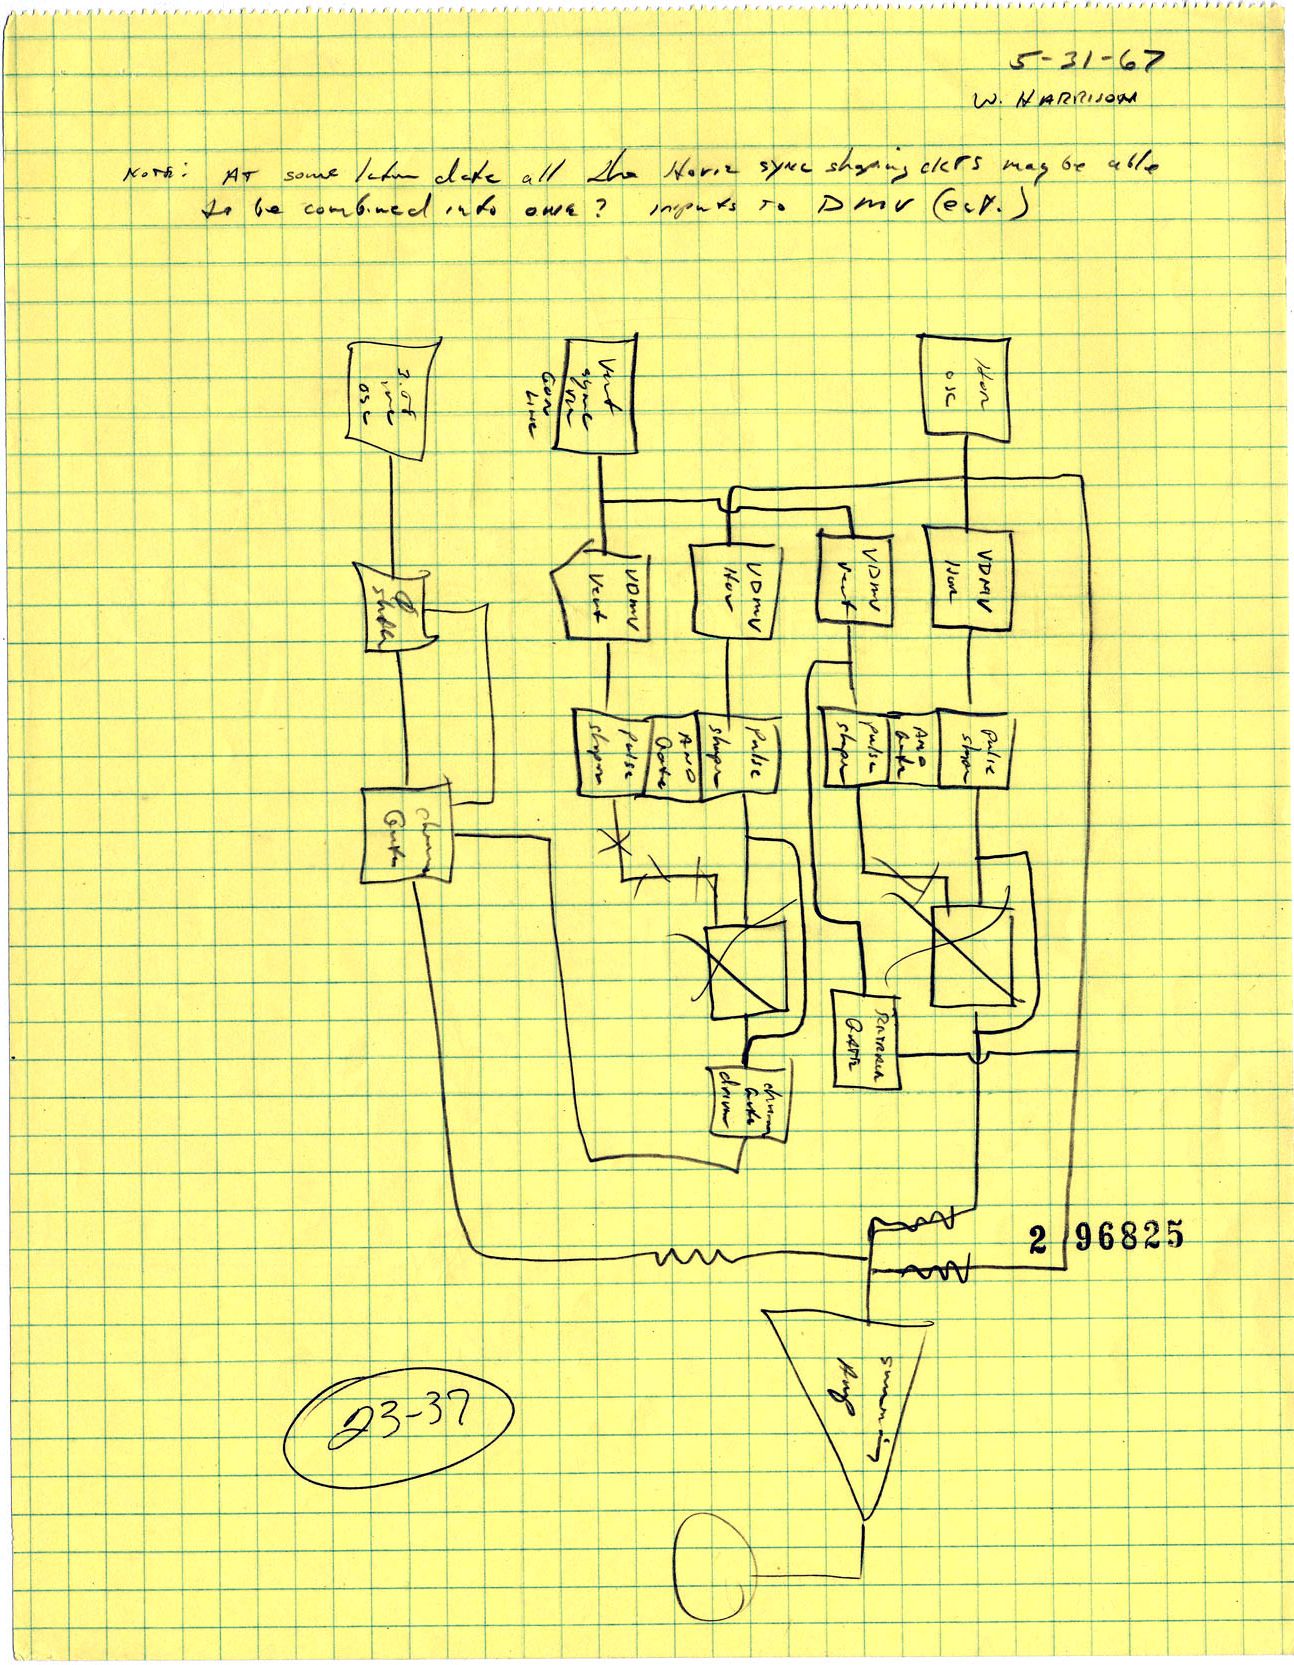 5-31-67
W. HARRISON
NOTE: AT some later date all the Horiz sync shaping ckts may be able
to be combined into one? inputs to DMV (ect.)
Hor
osc
Vert
sync
GEN
LINE
osc
VDMV
Hor
VDMV
Vert
VDMV
Hor
VDMV
Vert
pulse
shaper
AND
Gate
pulse
shaper
pulse
shaper
AND
Gate
pulse
shaper
chroma
Gate
GATE
chroma
Gate
driver
2 96825
summing
Amp
23-37